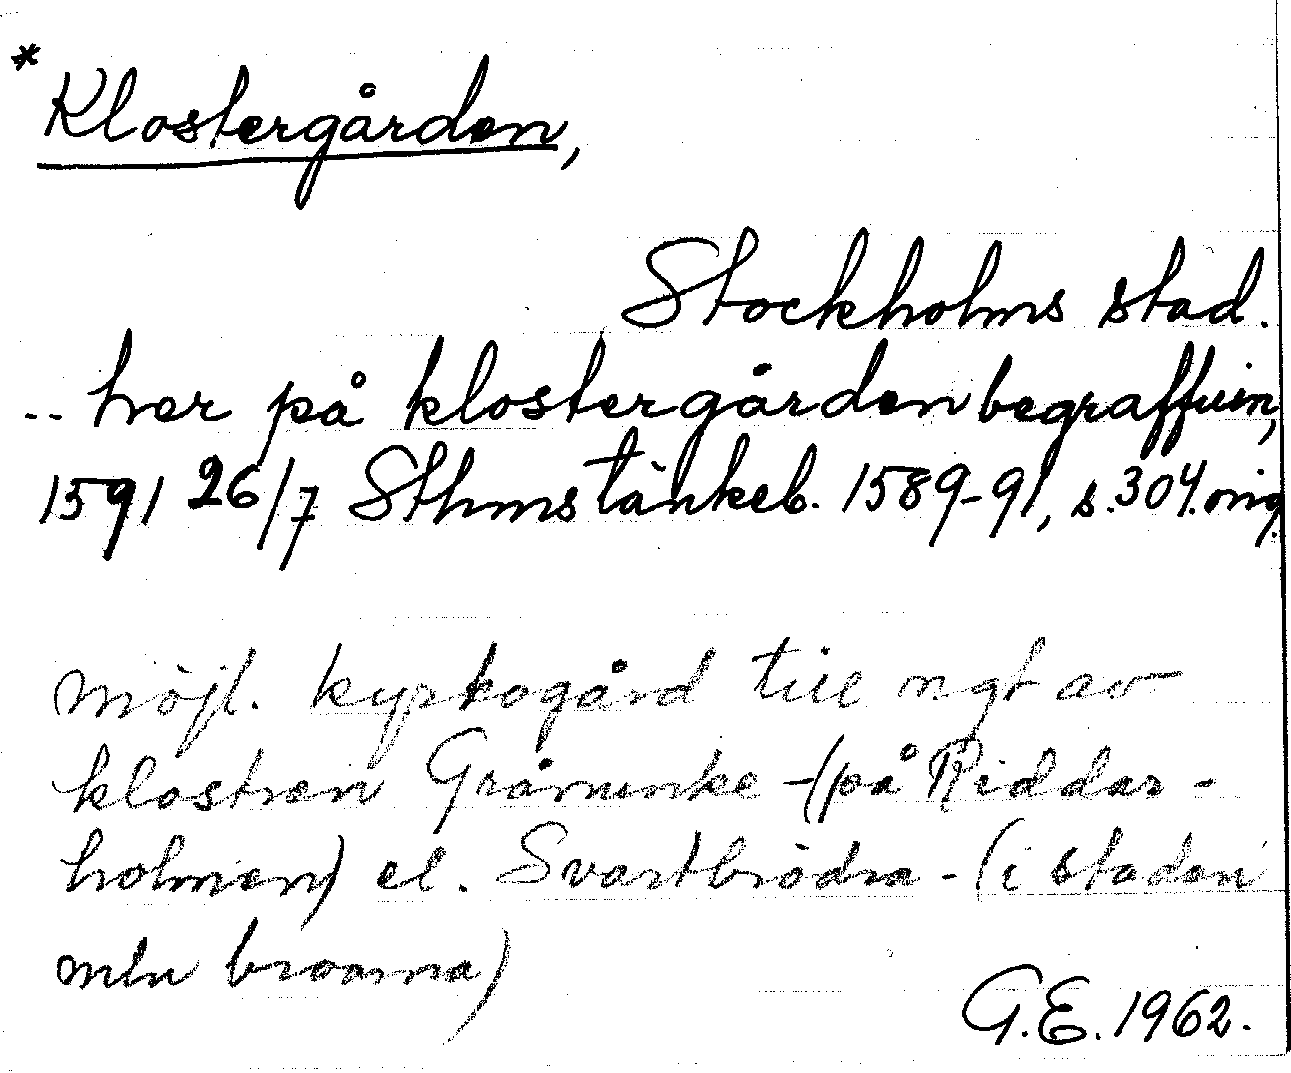 * Klostergården,
Stockholms stad.
.. her på klostergården begraffuin,
1591 26/7 Sthms tänkeb. 1589-91, s. 304. orig.
möjl. kyrkogård till ngt av
klostren Gråmunke -(på Riddar-
holmen) el. Svartbrödra - (i staden
mln broarna)
G.E. 1962.